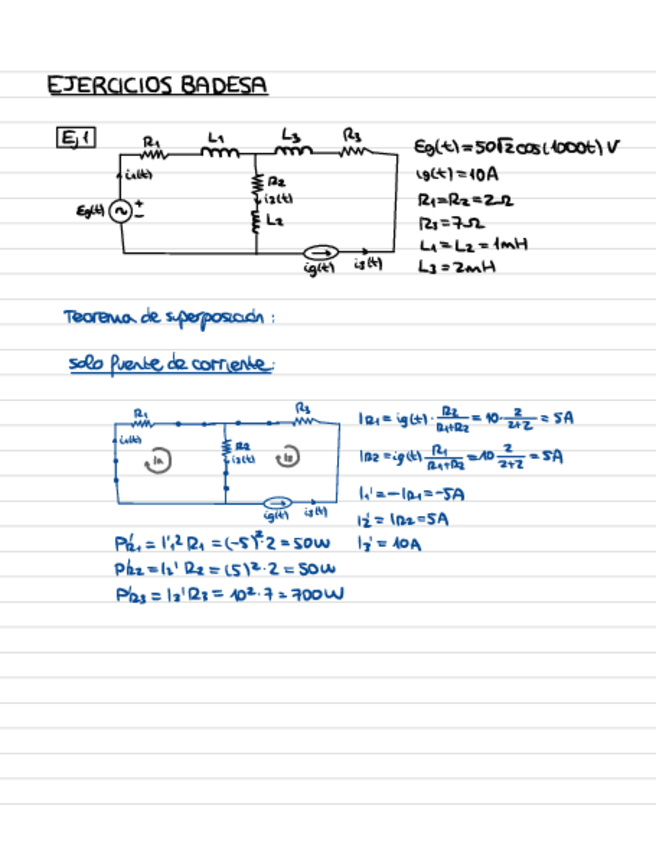 EJERCICIOS BADESA
Ej1
R₁ L₁ L₃ R₃
i₁(t)
R₂
i₂(t)
L₂
Eg(t)
+
-
ig(t) i₃(t)
Eg(t)=50√2cos(1000t) V
ig(t)=10A
R₁=R₂=2Ω
R₃=7Ω
L₁=L₂=1mH
L₃=2mH
Teorema de superposición:
solo fuente de corriente:
R₁ R₃
i₁(t)
R₂
i₂(t)
Ia
Ib
ig(t) i₃(t)
IR₁=ig(t)·R₂/(R₁+R₂)=10·2/(2+2)=5A
IR₂=ig(t)R₁/(R₁+R₂)=10·2/(2+2)=5A
I₁'=-IR₁=-5A
I₂'=IR₂=5A
I₃'=10A
P'R₁=I'₁²R₁=(-5)²·2=50W
P'R₂=I₂'R₂=(5)²·2=50W
P'R₃=I₃'R₃=10²·7=700W